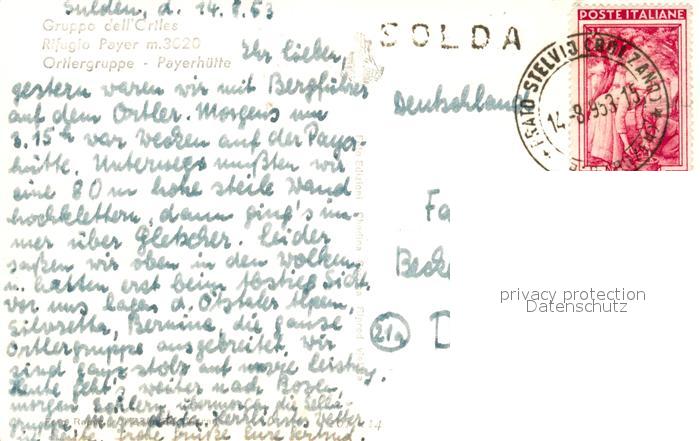 Sulden, d. 14.8.53
Gruppo dell'Ortles
Rifugio Payer m. 3020
Ortlergruppe - Payerhütte
Ihr Lieben,
gestern waren wir mit Bergführer
auf dem Ortler. Morgens um
3.15 h war Wecken auf der Payer-
hütte. Unterwegs mußten wir
eine 80 m hohe steile Wand
hochklettern, dann ging's im-
mer über Gletscher. Leider
saßen wir oben in den Wolken
u. hatten erst beim Abstieg Sicht.
Vor uns lagen d. Ötztaler Alpen,
Silvretta, Bernina, die ganze
Ortlergruppe ausgebreitet. Wir
sind ganz stolz auf unsere Leistung.
Heute geht's weiter nach Bozen
morgen übermorgen die Sella-
gruppe herrliches Wetter
Grüße Eure Gertrud.
SOLDA
POSTE ITALIANE
PRATO STELVIO
14-8-953-15
Deutschland
Fa
Beck
21a
D
privacy protection
Datenschutz